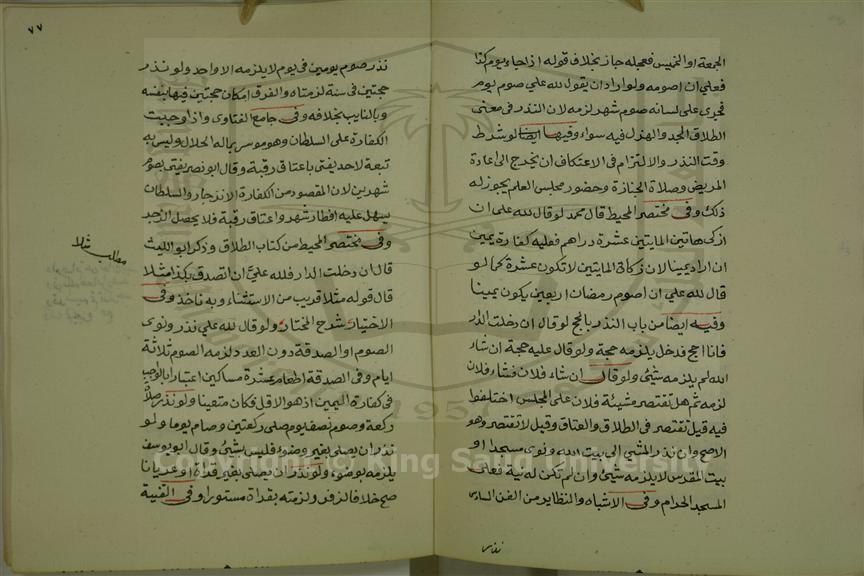 الجمعة او الخميس فعجله جاز بخلاف قوله اذا جاء يوم كذا
فعلي ان اصومه ولو اراد ان يقول لله علي صوم يوم
فجرى على لسانه صوم شهر لزمه لان النذر في معنى
الطلاق الجد والهزل فيه سواء وفيها ايضا لو شرط
وقت النذر والالتزام في الاعتكاف ان يخرج الى عادة
المريض وصلاة الجنازة وحضور مجلس العلم يجوز له
ذلك وفي مختصر المحيط قال محمد لو قال لله علي ان
ازكي هاتين المايتين عشرة دراهم فعليه كفارة يمين
ان اراد يمينا لان زكاة المايتين لا تكون عشرة كما لو
قال لله علي ان اصوم رمضان اربعين يكون يمينا
وفيه ايضا من باب النذر بالحج لو قال ان دخلت الدار
فانا احج فدخل يلزمه حجة ولو قال عليه حجة ان شاء
الله لم يلزمه شيئ ولو قال ان شاء فلان فشاء فلان
لزمه ثم هل تقتصر مشيئة فلان على المجلس اختلفوا
فيه قيل تقتصر في الطلاق والعتاق وقيل لا تقتصر وهو
الاصح وان نذر المشي الى بيت الله ونوى مسجدا او
بيت المقدس لا يلزمه شيئ وان لم تكن له نية فعلى
المسجد الحرام وفي الاشباه والنظاير من الفن السادس
نذر
٧٧
نذر صوم يومين في يوم لا يلزمه الا واحد ولو نذر
حجتين في سنة لزمتاه والفرق امكان حجتين فيها بنفسه
وبالنايب بخلافه وفي جامع الفتاوى واذا وجبت
الكفارة على السلطان وهو موسر بماله الحلال وليس به
تبعة لاحد يفتى باعتاق رقبة وقال ابو نصر يفتى بصوم
شهرين لان المقصود من الكفارة الانزجار والسلطان
يسهل عليه افطار شهر واعتاق رقبة فلا يحصل الزجر
وفي مختصر المحيط من كتاب الطلاق وذكر ابو الليث
مطلب مثلا
قال ان دخلت الدار فلله علي ان اتصدق بكذا مثلا
قال قوله مثلا قريب من الاستثناء وبه ناخذ وفي
الاختيار شرح المختار ولو قال لله علي نذر ونوى
الصوم او الصدقة دون العدد لزمه الصوم ثلاثة
ايام وفي الصدقة اطعام عشرة مساكين اعتبارا بالواجب
في كفارة اليمين اذ هو الاقل فكان متعينا ولو نذر صلاة
ركعة وصوم نصف يوم صلى ركعتين وصام يوما ولو
نذر ان يصلي بغير وضوء فليس بشيئ وقال ابو يوسف
يلزمه بوضوء ولو نذر ان يصلي بغير قراة او عريانا
صح خلافا لزفر ولزمته بقراة مستورا وفي القنية
Copyright © King Saud University
1957